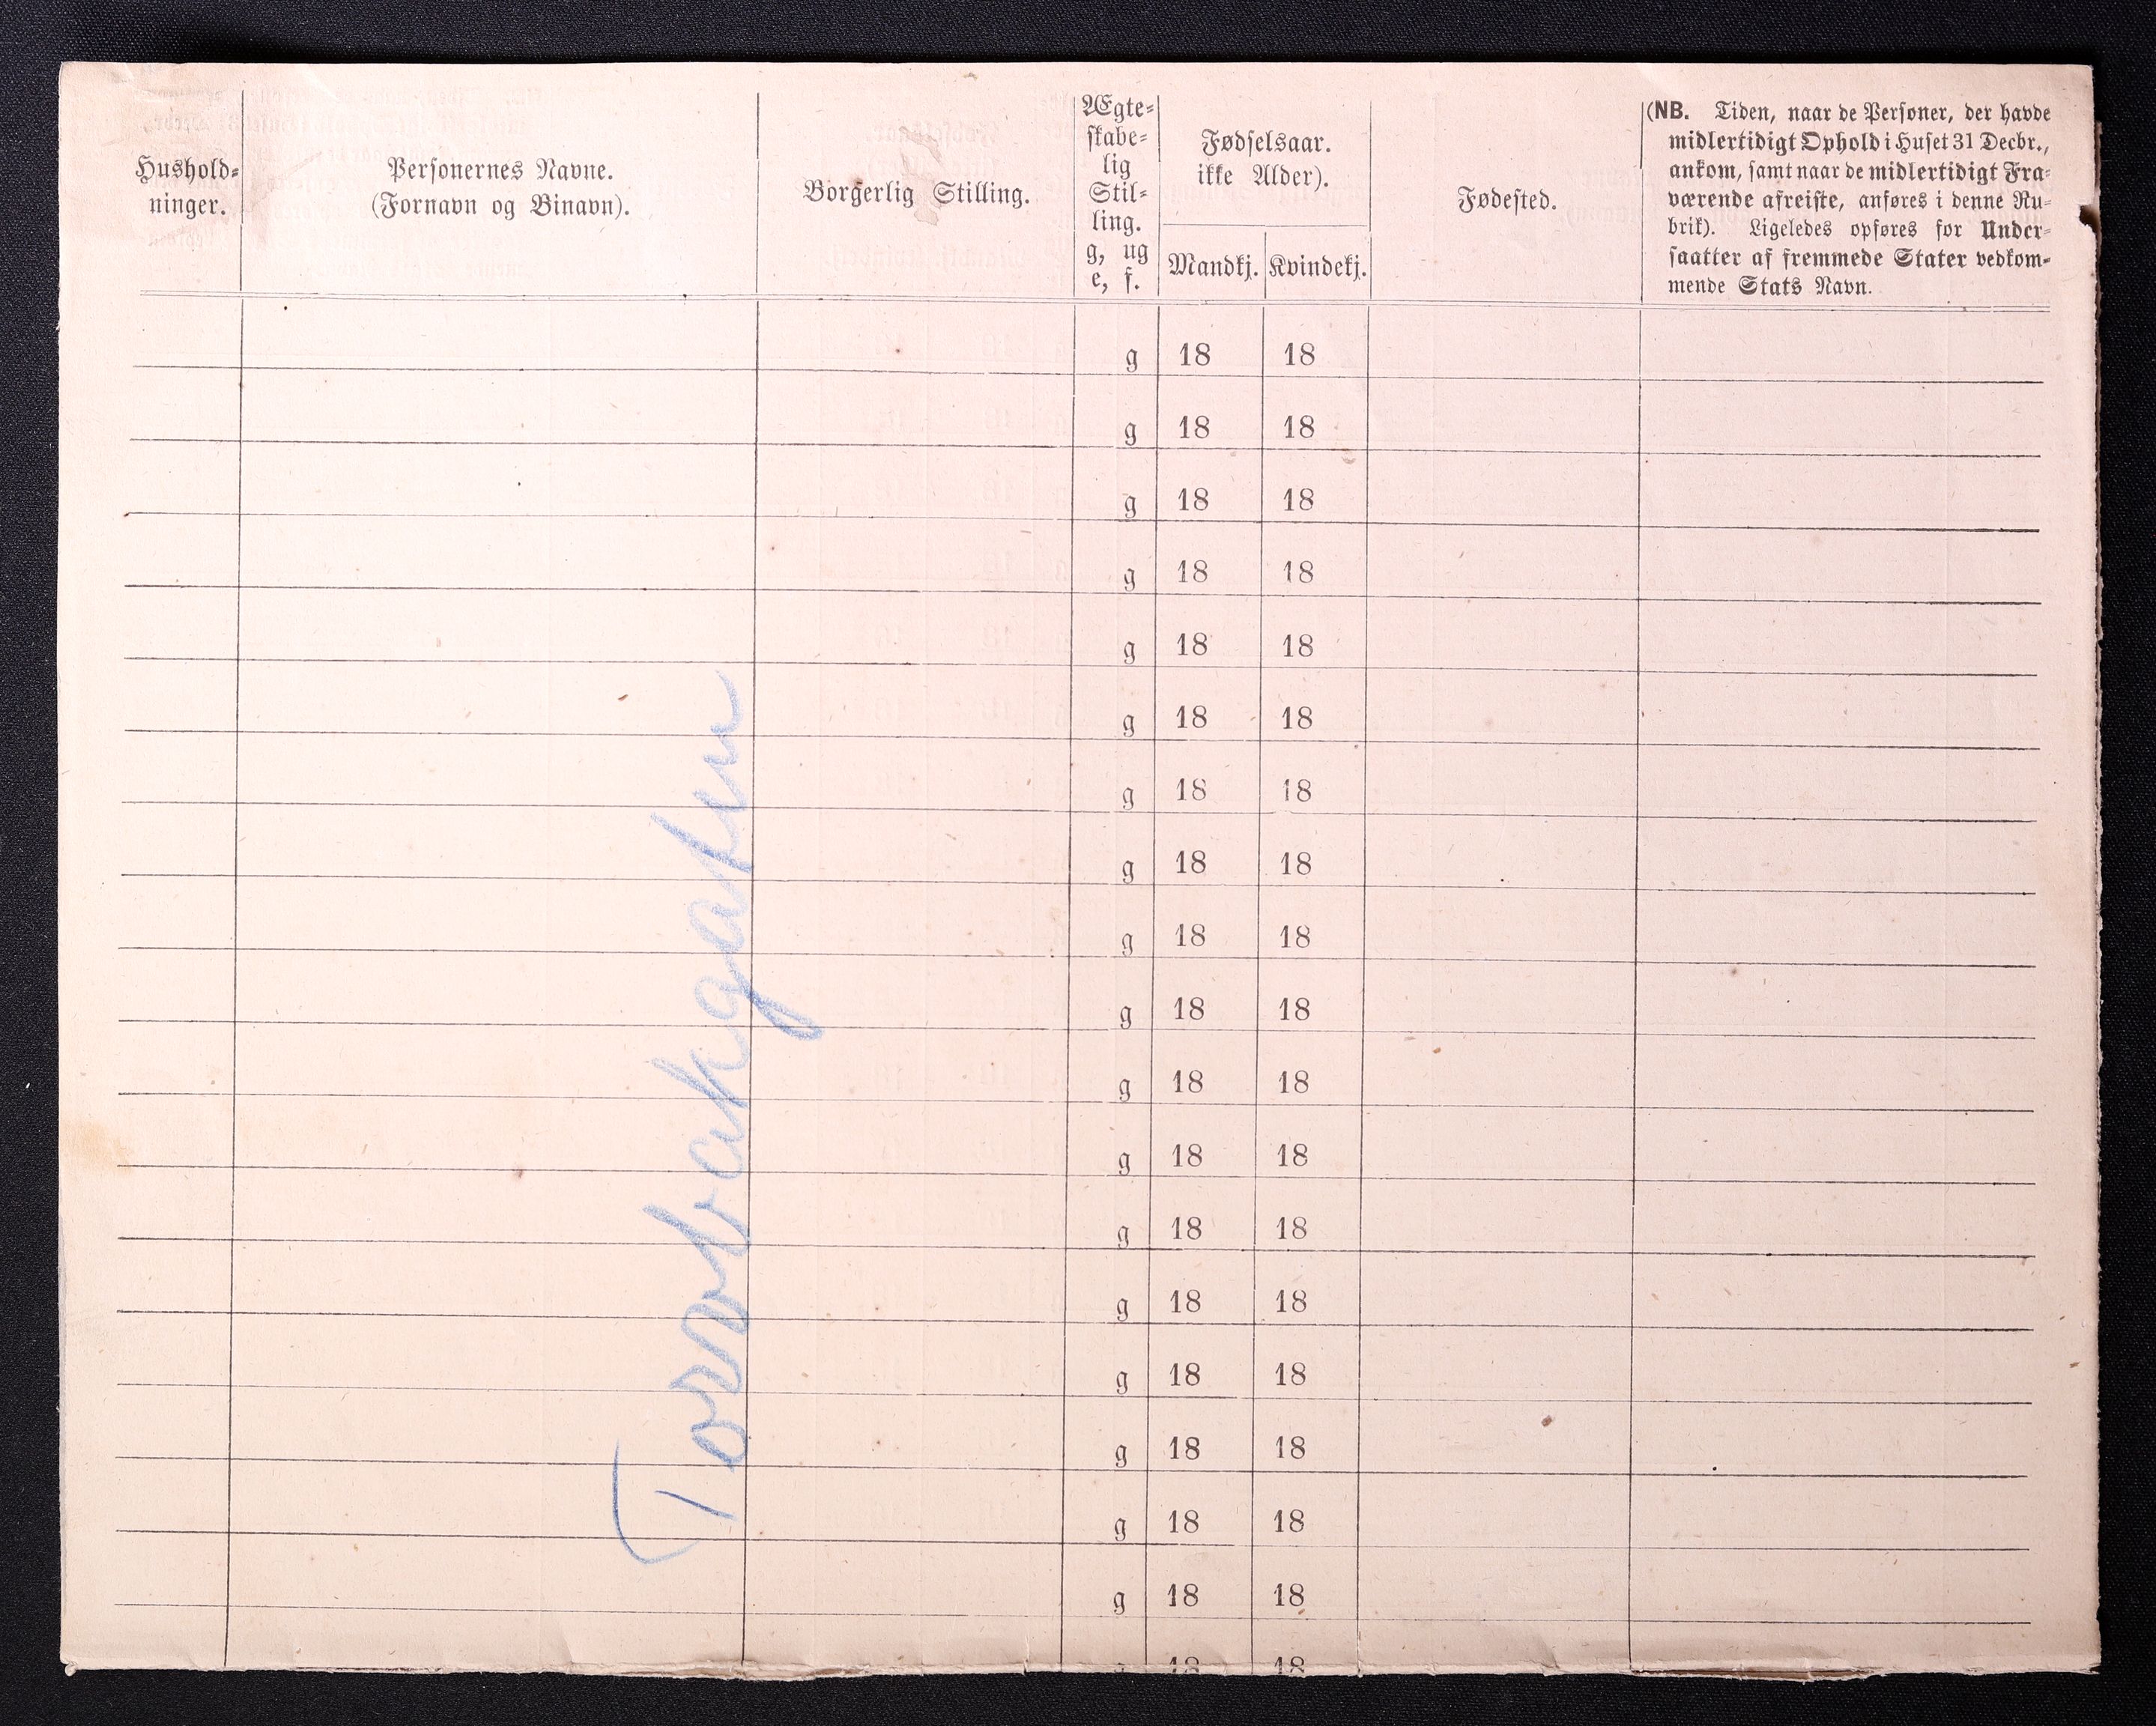 Hushold-
ninger.
Personernes Navne.
(Fornavn og Binavn).
Borgerlig Stilling.
Ægte-
skabe-
lig
Stil-
ling.
g, ug
e, f.
Fødselsaar.
ikke Alder).
Mandkj.
Kvindekj.
Fødested.
(NB. Tiden, naar de Personer, der havde
midlertidigt Ophold i Huset 31 Decbr.,
ankom, samt naar de midlertidigt Fra-
værende afreiste, anføres i denne Ru-
brik). Ligeledes opføres for Under-
saatter af fremmede Stater vedkom-
mende Stats Navn.
g 18 18
g 18 18
g 18 18
g 18 18
g 18 18
g 18 18
g 18 18
g 18 18
g 18 18
g 18 18
g 18 18
g 18 18
g 18 18
g 18 18
g 18 18
g 18 18
g 18 18
g 18 18
18 18
Torvbakgaten